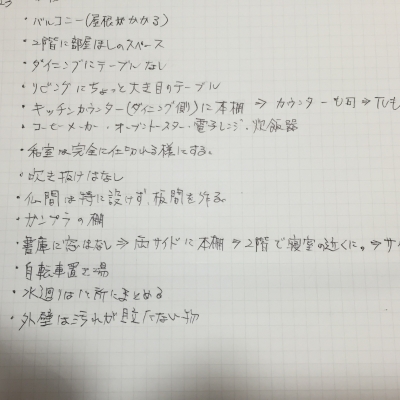 ・バルコニー(屋根がかかる)
・2階に部屋ほしのスペース
・ダイニングにテーブルなし
・リビングにちょっと大き目のテーブル
・キッチンカウンター(ダイニング側)に本棚 ⇒ カウンターも可 ⇒ TVも
・コーヒーメーカー・オーブントースター・電子レンジ・炊飯器
・和室は完全に仕切れる様にする。
・吹き抜けはなし
・仏間は特に設けず、板間を作る。
・ガンプラの棚
・書庫に窓はなし ⇒ 両サイドに本棚 ⇒ 2階で寝室の近くに。⇒ サイ
・自転車置き場
・水廻りは1ヶ所にまとめる
・外壁は汚れが目立たない物